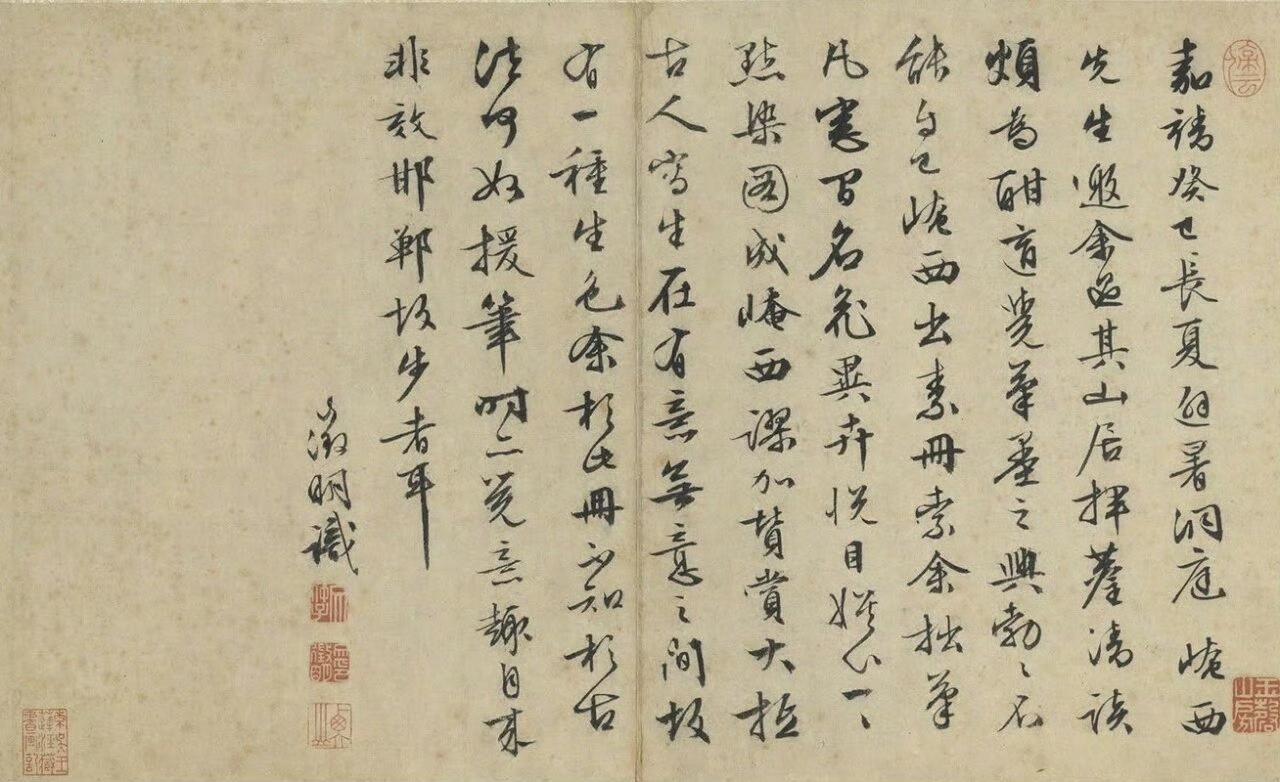 嘉靖癸巳長夏避暑洞庭崦西
先生邀余過其山居揮麈清談
頗為酣適覺筆墨之興勃〻不
能自已崦西出素冊索余拙筆
凡窓間名花異卉悦目娱心一〻
點染圖成崦西謬加賛賞大抵
古人寫生在有意無意之間故
有一種生色余於此冊不知於古
法何如援筆時亦覺意趣自來
非效邯鄲故步者耳
徵明識